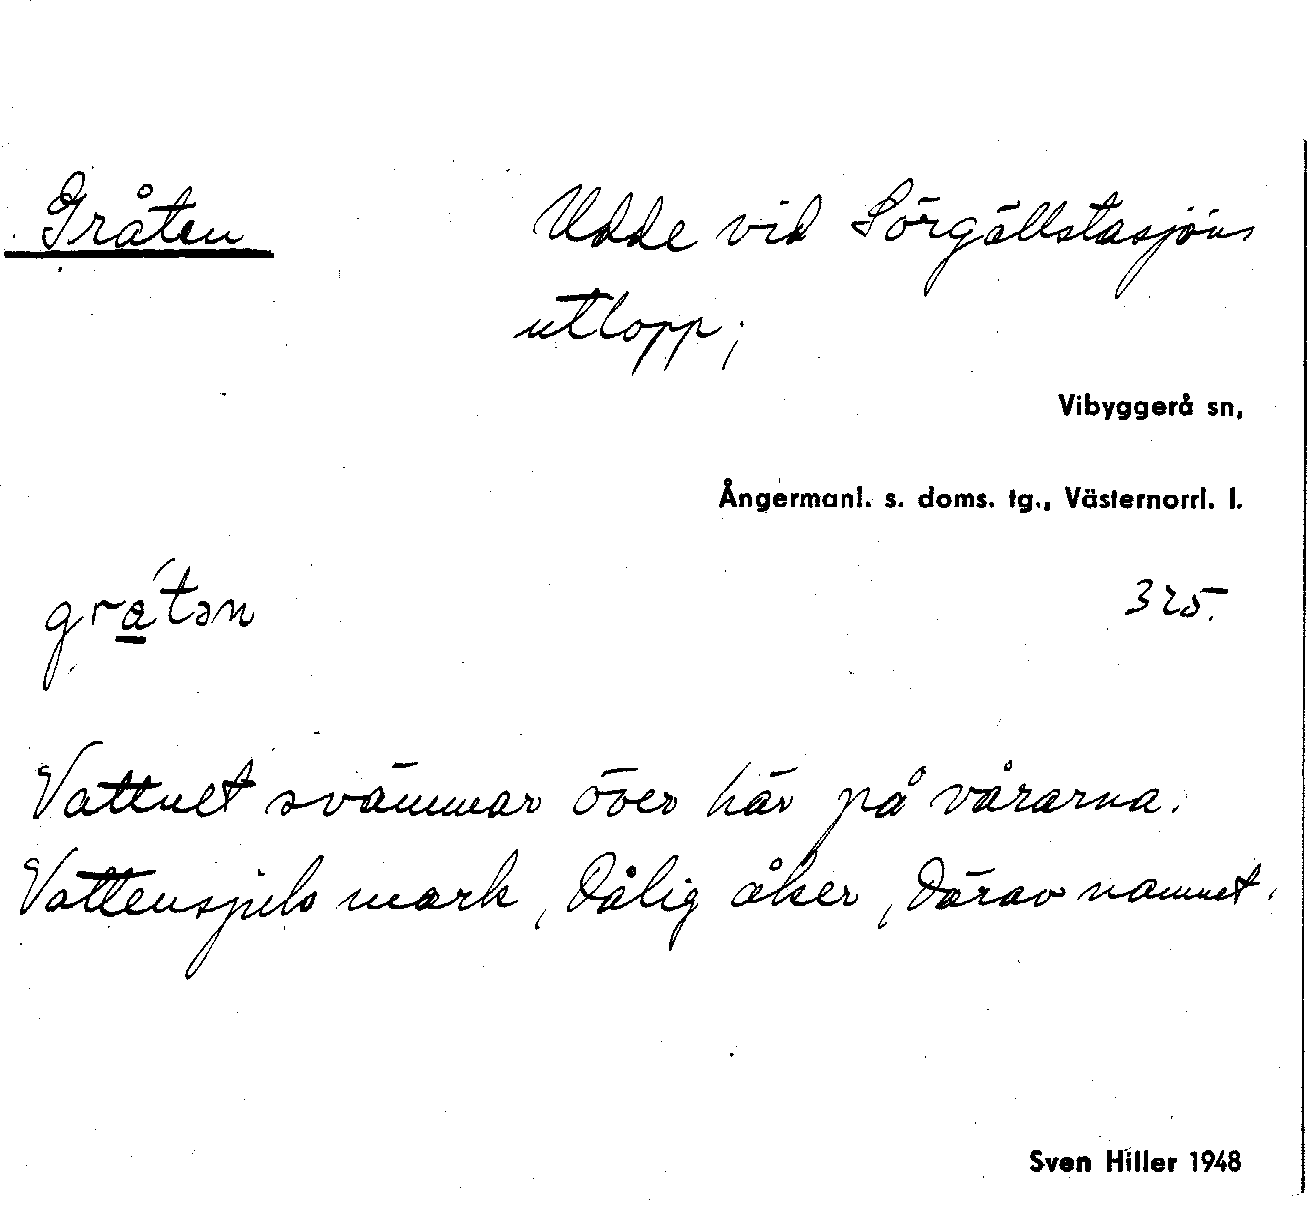 Gråten Udde vid Sörgällstasjöns
utlopp;
Vibyggerå sn,
Ångermanl. s. doms. tg., Västernorrl. l.
grátən 325.
Vattnet svämmar över här på vårarna.
Vattensjuk mark, dålig åker, därav namnet.
Sven Hiller 1948